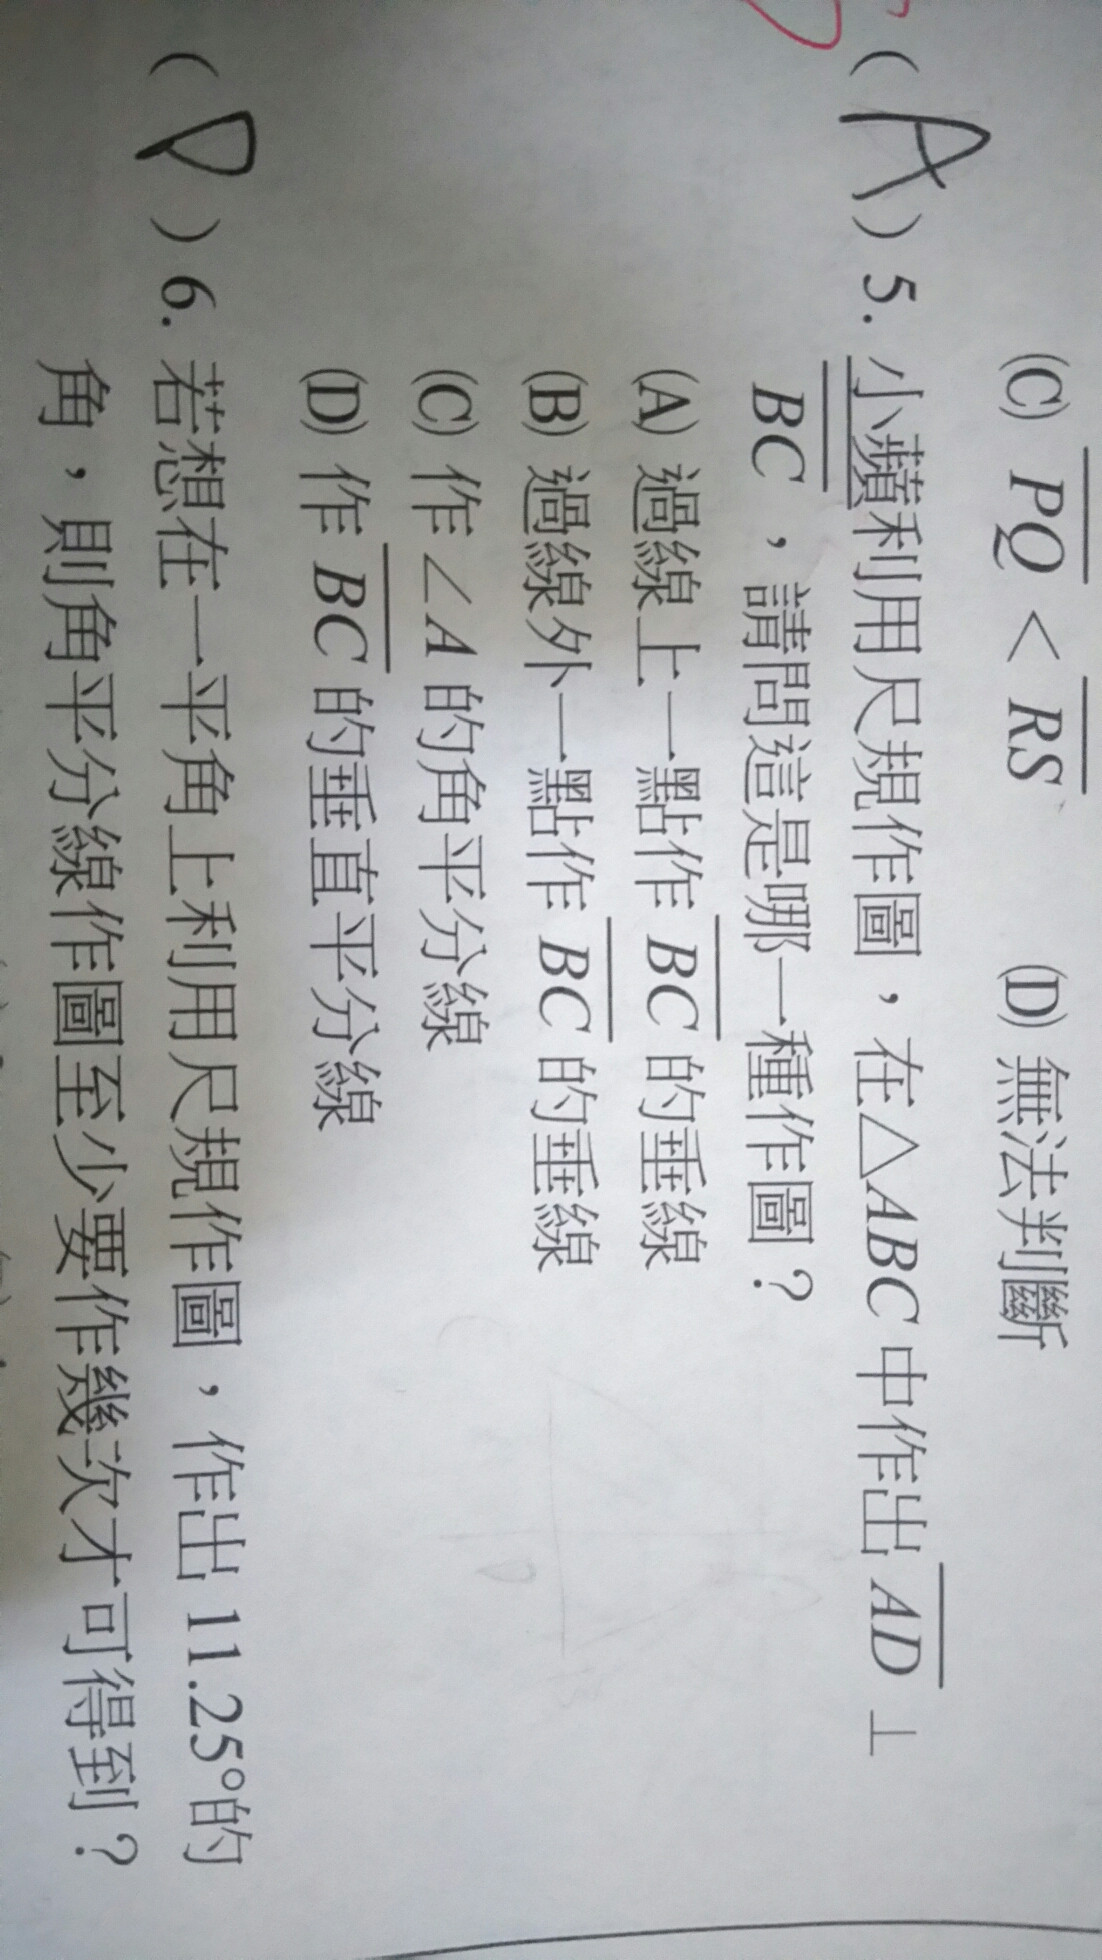 (C) PQ < RS (D) 無法判斷
( A ) 5. 小蘋利用尺規作圖，在△ABC 中作出 AD ⊥
BC，請問這是哪一種作圖？
(A) 過線上一點作 BC 的垂線
(B) 過線外一點作 BC 的垂線
(C) 作∠A 的角平分線
(D) 作 BC 的垂直平分線
( D ) 6. 若想在一平角上利用尺規作圖，作出 11.25°的
角，則角平分線作圖至少要作幾次才可得到？